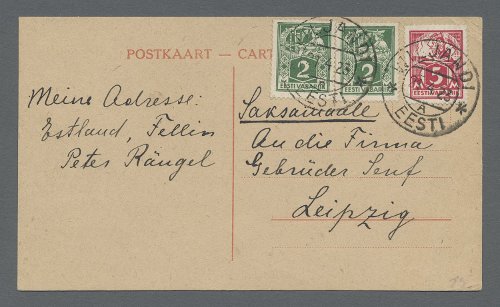 POSTKAART — CART
2
EESTI VABAR
2
EESTI VABA
5
M M
EESTI VABAR
VILJANDI
EESTI
A
VILJANDI
EESTI
Meine Adresse:
Estland, Fellin
Peter Rängel
Saksamaale
An die Firma
Gebrüder Senf
Leipzig